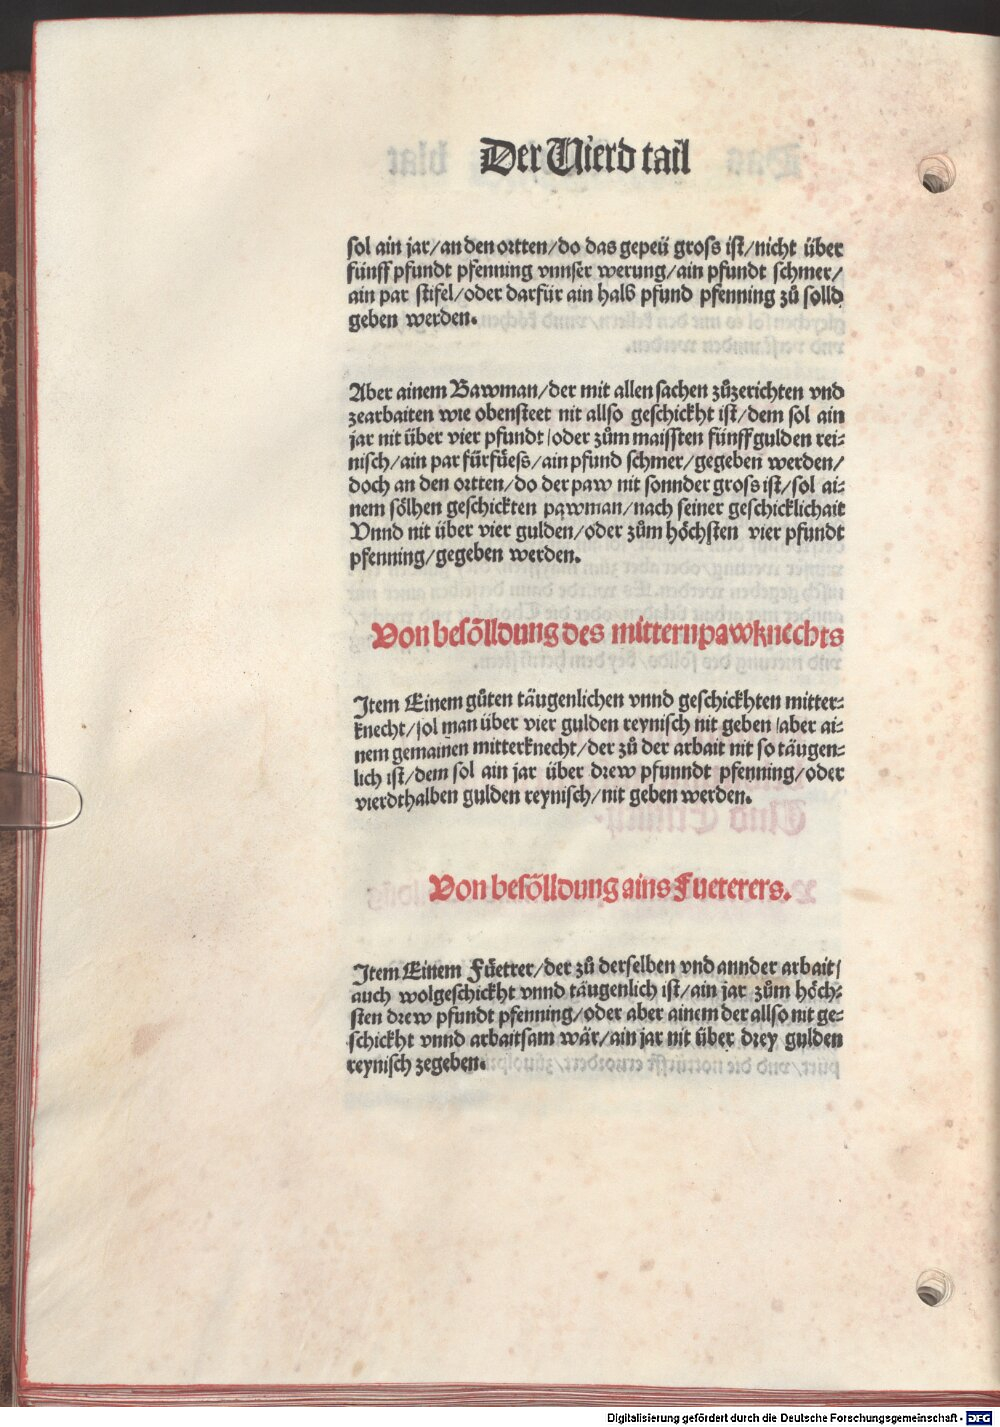 Der Vierd tail
sol ain jar/an den ortten/do das gepeü gross ist/nicht über
fünff pfundt pfenning vnnser werung/ain pfundt schmer/
ain par stifel/oder darfür ain halb pfund pfenning zů solld
geben werden.
Aber ainem Bawman/der mit allen sachen zůzerichten vnd
zearbaiten wie obensteet nit allso geschickht ist/dem sol ain
jar nit über vier pfundt/oder zům maissten fünff gulden rei-
nisch/ain par fürfüess/ain pfund schmer/gegeben werden/
doch an den ortten/do der paw nit sonnder gross ist/sol ai-
nem sölhen geschickten pawman/nach seiner geschicklichait
Vnnd nit über vier gulden/oder zům höchsten vier pfundt
pfenning/gegeben werden.
Von besölldung des mitternpawknechts
Item Einem gůten täugenlichen vnnd geschickhten mitter-
knecht/sol man über vier gulden reynisch nit geben/aber ai-
nem gemainen mitterknecht/der zů der arbait nit so täugen-
lich ist/dem sol ain jar über drew pfunndt pfenning/oder
vierdthalben gulden reynisch/nit geben werden.
Von besölldung ains Fueterers.
Item Einem Füetrer/der zů derselben vnd annder arbait/
auch wolgeschickht vnnd täugenlich ist/ain jar zům höch-
sten drew pfundt pfenning/oder aber ainem der allso nit ge-
schickht vnnd arbaitsam wär/ain jar nit über drey gulden
reynisch zegeben.
Digitalisierung gefördert durch die Deutsche Forschungsgemeinschaft - DFG